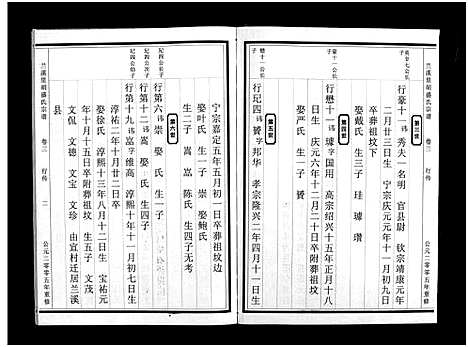 兰溪皇明盛氏宗谱 卷三 行传
公元二〇〇五年重修
第三世
行豪十一 讳秀夫 一名明 官县尉 钦宗靖康元年
二月廿三日生 宁宗庆元元年十一月初九日
卒葬祖坟下
娶戴氏 生三子 珪 璩 瓒
第四世
豪十一公长子
行懋十一 讳璩 字国用 高宗绍兴十五年正月十八
日生 庆元六年十二月二十日卒附葬祖坟
娶严氏 生一子 赟
第五世
懋十一公长子
行玘四 讳赟 字邦华 孝宗隆兴二年四月十一日生
宁宗嘉定五年五月初一日卒葬祖坟边
娶叶氏 生一子 崇
第六世
玘四公长子
行第六 讳崇 娶鲍氏
生二子 嵩 嵓
陈氏 生四子无考
行第十二 讳 娶 氏 生四子
行第十九 讳富 字维高 淳熙十年十一月初七日生
淳祐二年十月廿二日卒
娶徐氏 淳熙十三年八月十二日生 宝祐元
年十月十五日卒附葬祖坟 生五子 文茂
文侃 文德 文宝 文珍 由宜村迁居兰溪
县
兰溪皇明盛氏宗谱 卷三 行传 二
公元二〇〇五年重修